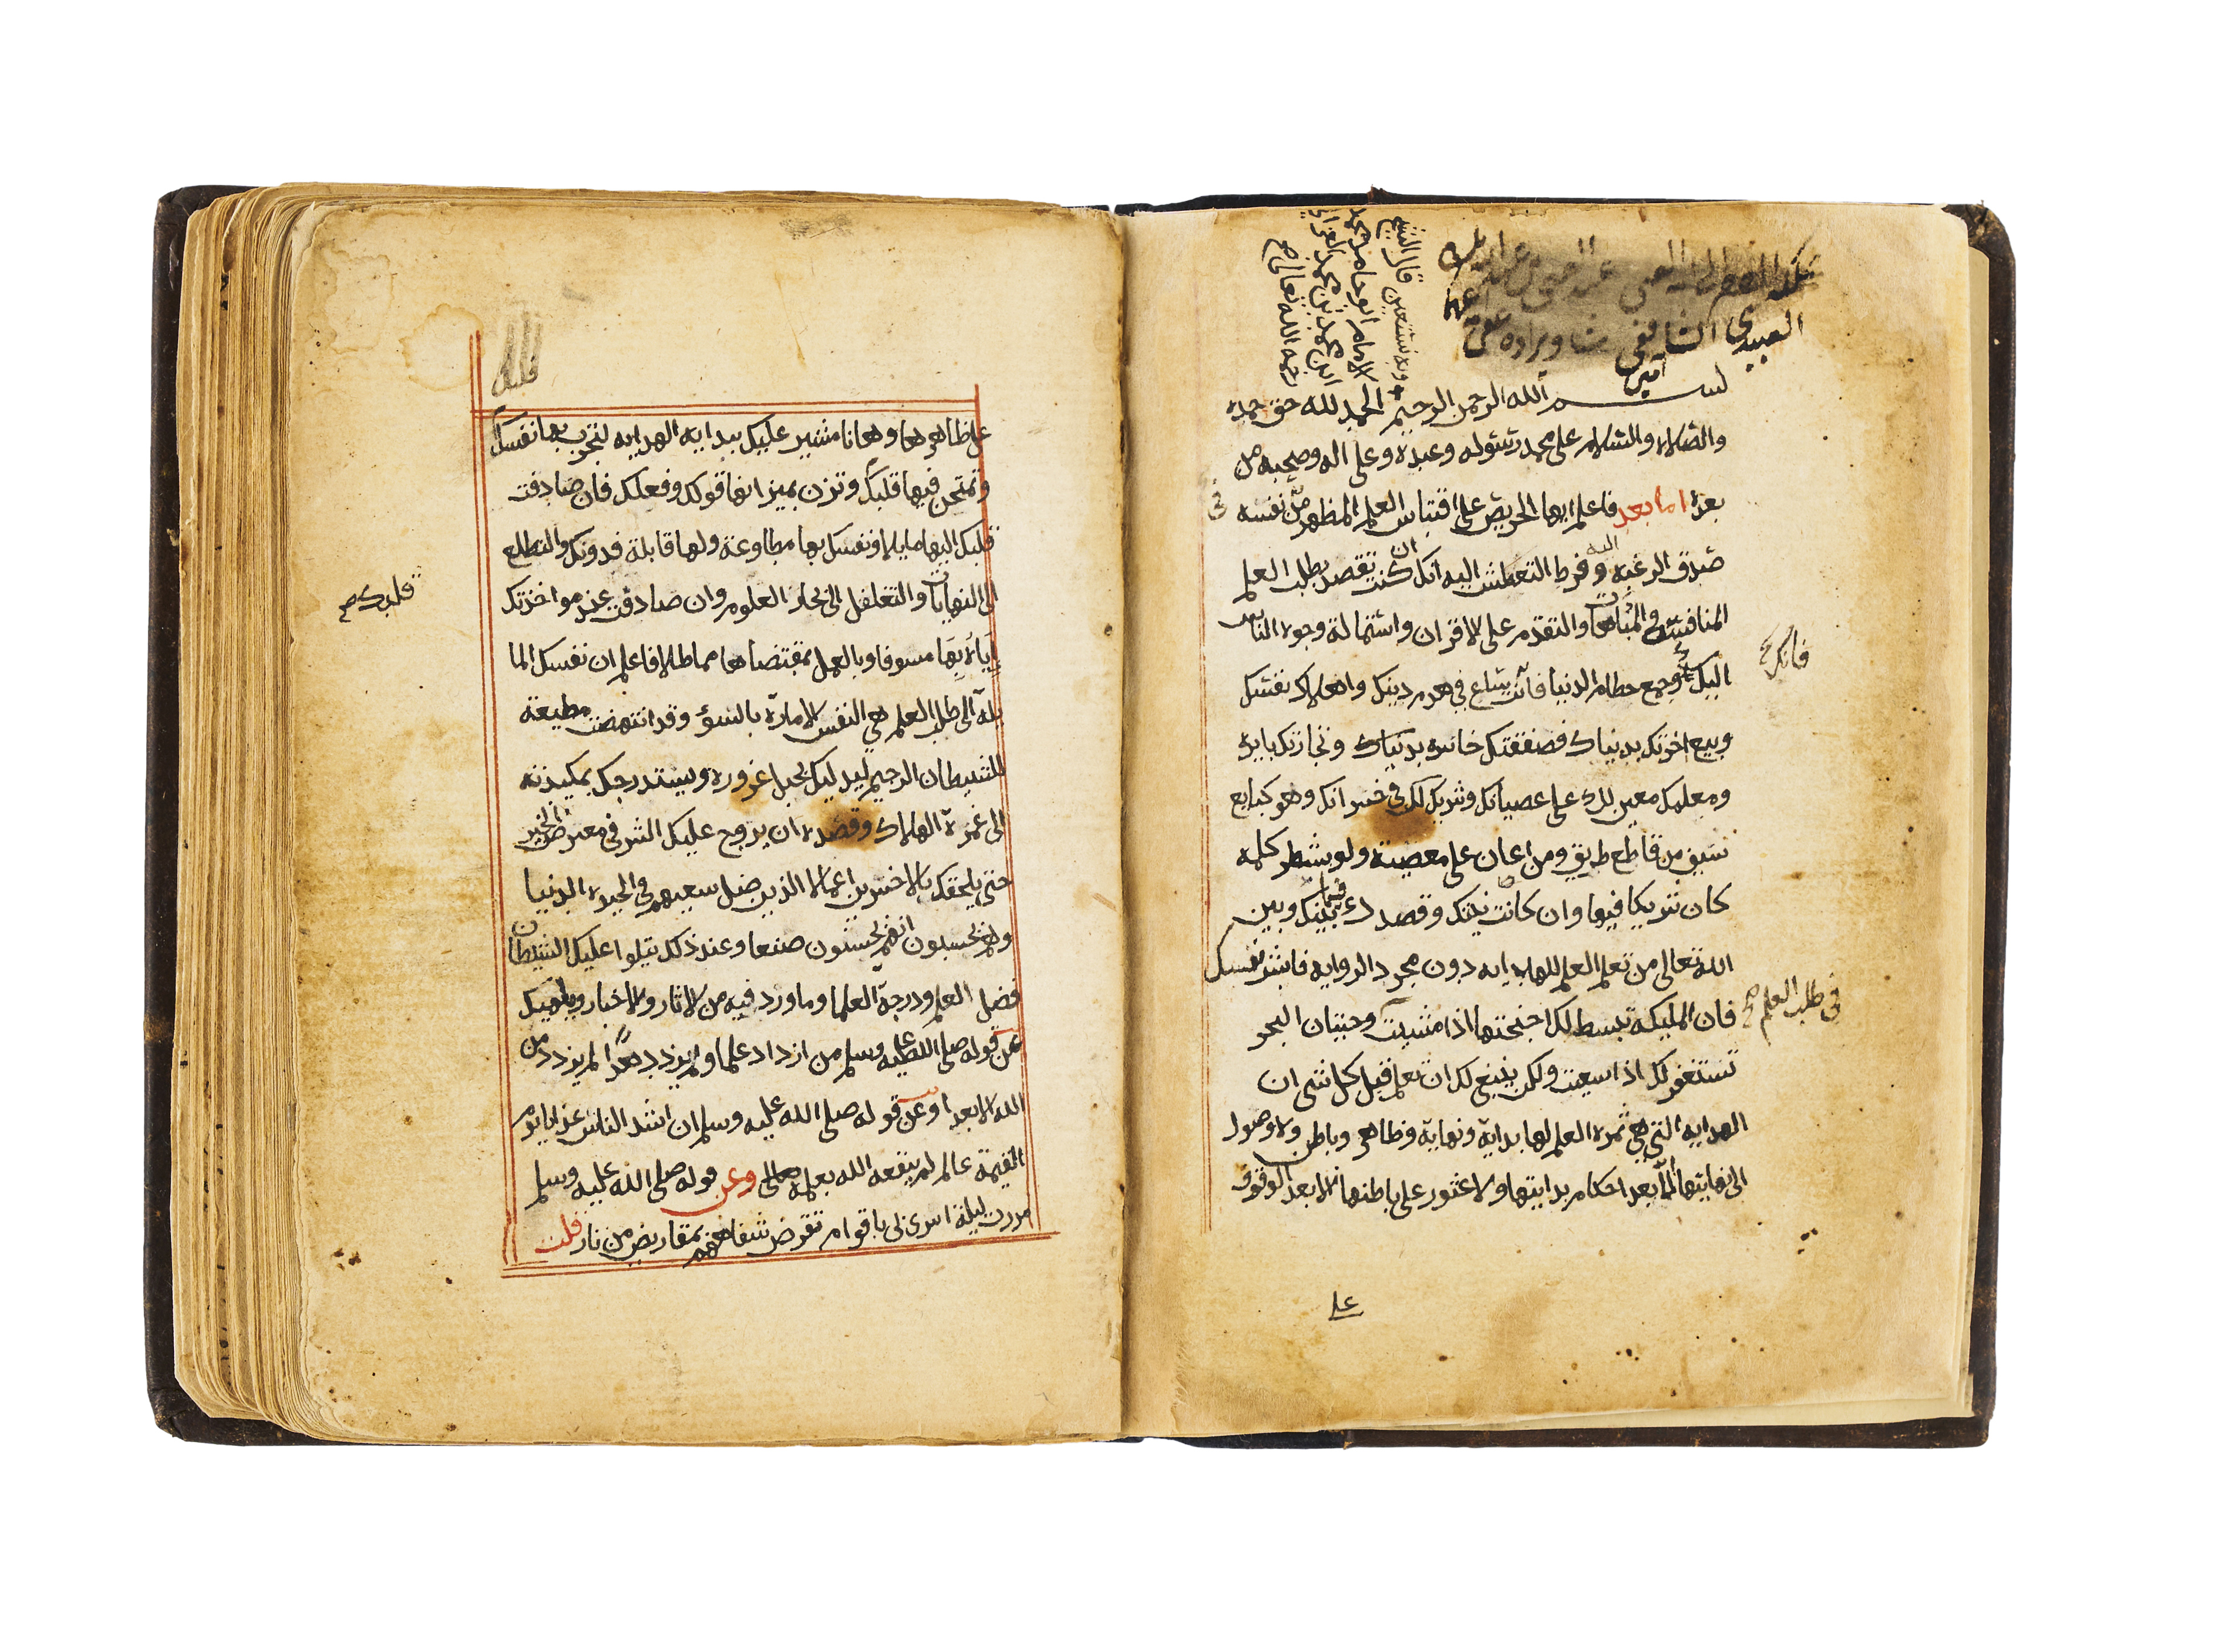 العبيدي الشافعي
آمين
وبه نستعين قال الشيخ
الامام ابو حامد محمد
ابن محمد بن محمد الغزالي
رحمه الله تعالى
بسم الله الرحمن الرحيم الحمد لله حق حمده
والصلاه والسلام على محمد رسوله وعبده وعلى اله وصحبه من
بعده اما بعد فاعلم ايها الحريص على اقتباس العلم المظهر من نفسه
صدق الرغبه وفرط التعطش اليه انك ان كنت تقصد بطلب العلم
المنافسة والمباهات والتقدم على الاقران واستمالة وجوه الناس
اليك وجمع حطام الدنيا فانت ساع في هدم دينك واهلاك نفسك
فانك صح
وبيع اخرتك بدنياك فصفقتك خاسره وتجارتك بايره
ومعلمك معين لك على عصيانك وشريك لك في خسرانك وهو كبايع
سيف من قاطع طريق ومن اعان على معصية ولو بشطر كلمه
كان شريكا فيها وان كانت نيتك وقصدك فيما بينك وبين
الله تعالى من تعلم العلم للهدايه دون مجرد الروايه فابشر نفسك
في طلب العلم صح
فان المليكة تبسط لك اجنحتها اذا مشيت وحيتان البحر
تستغفر لك اذا سعيت ولكن ينبغ لك ان تعلم قبل كل شي ان
الهدايه التي هي ثمره العلم لها بداية ونهاية وظاهر وباطن ولا وصول
الى نهايتها الا بعد احكام بدايتها ولا عثور على باطنها الا بعد الوقوف
على
على ظاهرها وها انا مشير عليك ببدايه الهدايه لتجرب بها نفسك
وتمتحن فيها قلبك وتزن بميزانها قولك وفعلك فان صادفت
قلبك اليها مايلا ونفسك بها مطاوعة ولها قابلة فدونك والتطلع
الى النهايات والتغلغل الى بحار العلوم وان صادفت عند مواخذتك
قلبك صح
اياه بها مسوفا وبالعمل بمقتضاها مماطلا فاعلم ان نفسك الما
يلة الى طلب العلم هي النفس الامارة بالسوء وقد انتهضت مطيعة
للشيطان الرجيم ليدليك بحبل غروره ويستدرجك بمكيدته
الى غمرة الهلاك وقصده ان يروج عليك الشر في معرض الخير
حتى يلحقك بالاخسرين اعمالا الذين ضل سعيهم في الحيوه الدنيا
وهم يحسبون انهم يحسنون صنعا وعند ذلك يتلوا عليك الشيطان
فضل العلم ودرجة العلما وما ورد فيه من الاثار والاخبار ويلهيك
عن قوله صلى الله عليه وسلم من ازداد علما ولم يزدد هدا لم يزدد من
الله الا بعدا وعن قوله صلى الله عليه وسلم ان اشد الناس عذابا يوم
القيمة عالم لم ينفعه الله بعلمه وعن قوله صلى الله عليه وسلم
مررت ليلة اسري بي باقوام تقرض شفاههم بمقاريض من نار فقلت